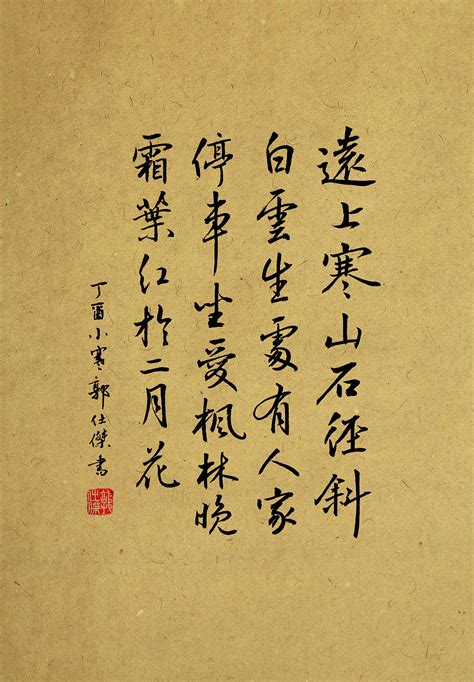 遠上寒山石徑斜
白雲生處有人家
停車坐愛楓林晚
霜葉紅於二月花
丁酉小寒郭仕傑書